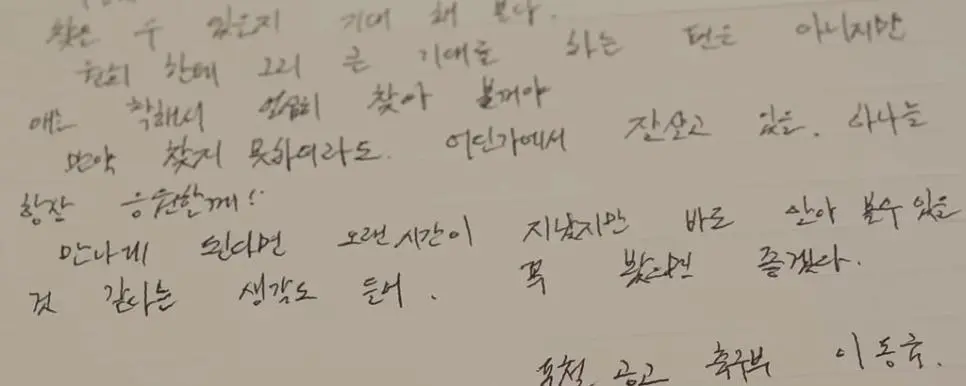 찾을 수 있을지 기대 해 본다.
원희 한테 그리 큰 기대를 하는 편은 아니지만
애는 착해서 열심히 찾아 볼꺼야
만약 찾지 못하더라도. 어딘가에서 잘살고 있을. 하나늘
항상 응원할께!
만나게 된다면 오랜시간이 지났지만 바로 알아 볼수있을
것 같다는 생각도 들어. 꼭 봤으면 좋겠다.
공고 축구부 이동국.